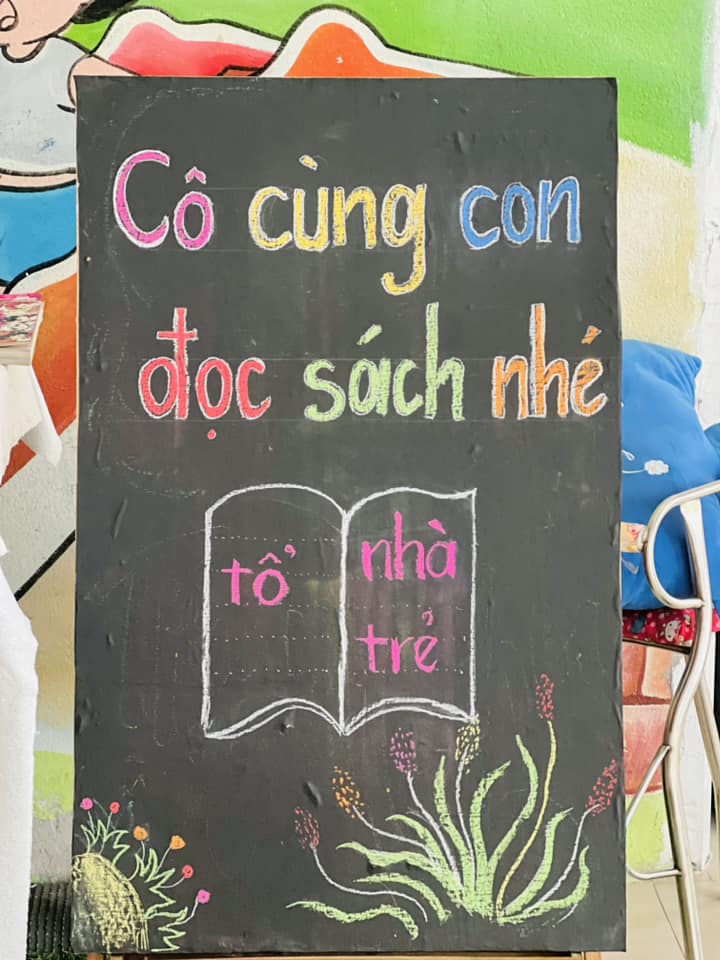 Cô cùng con
đọc sách nhé
tổ
nhà
trẻ